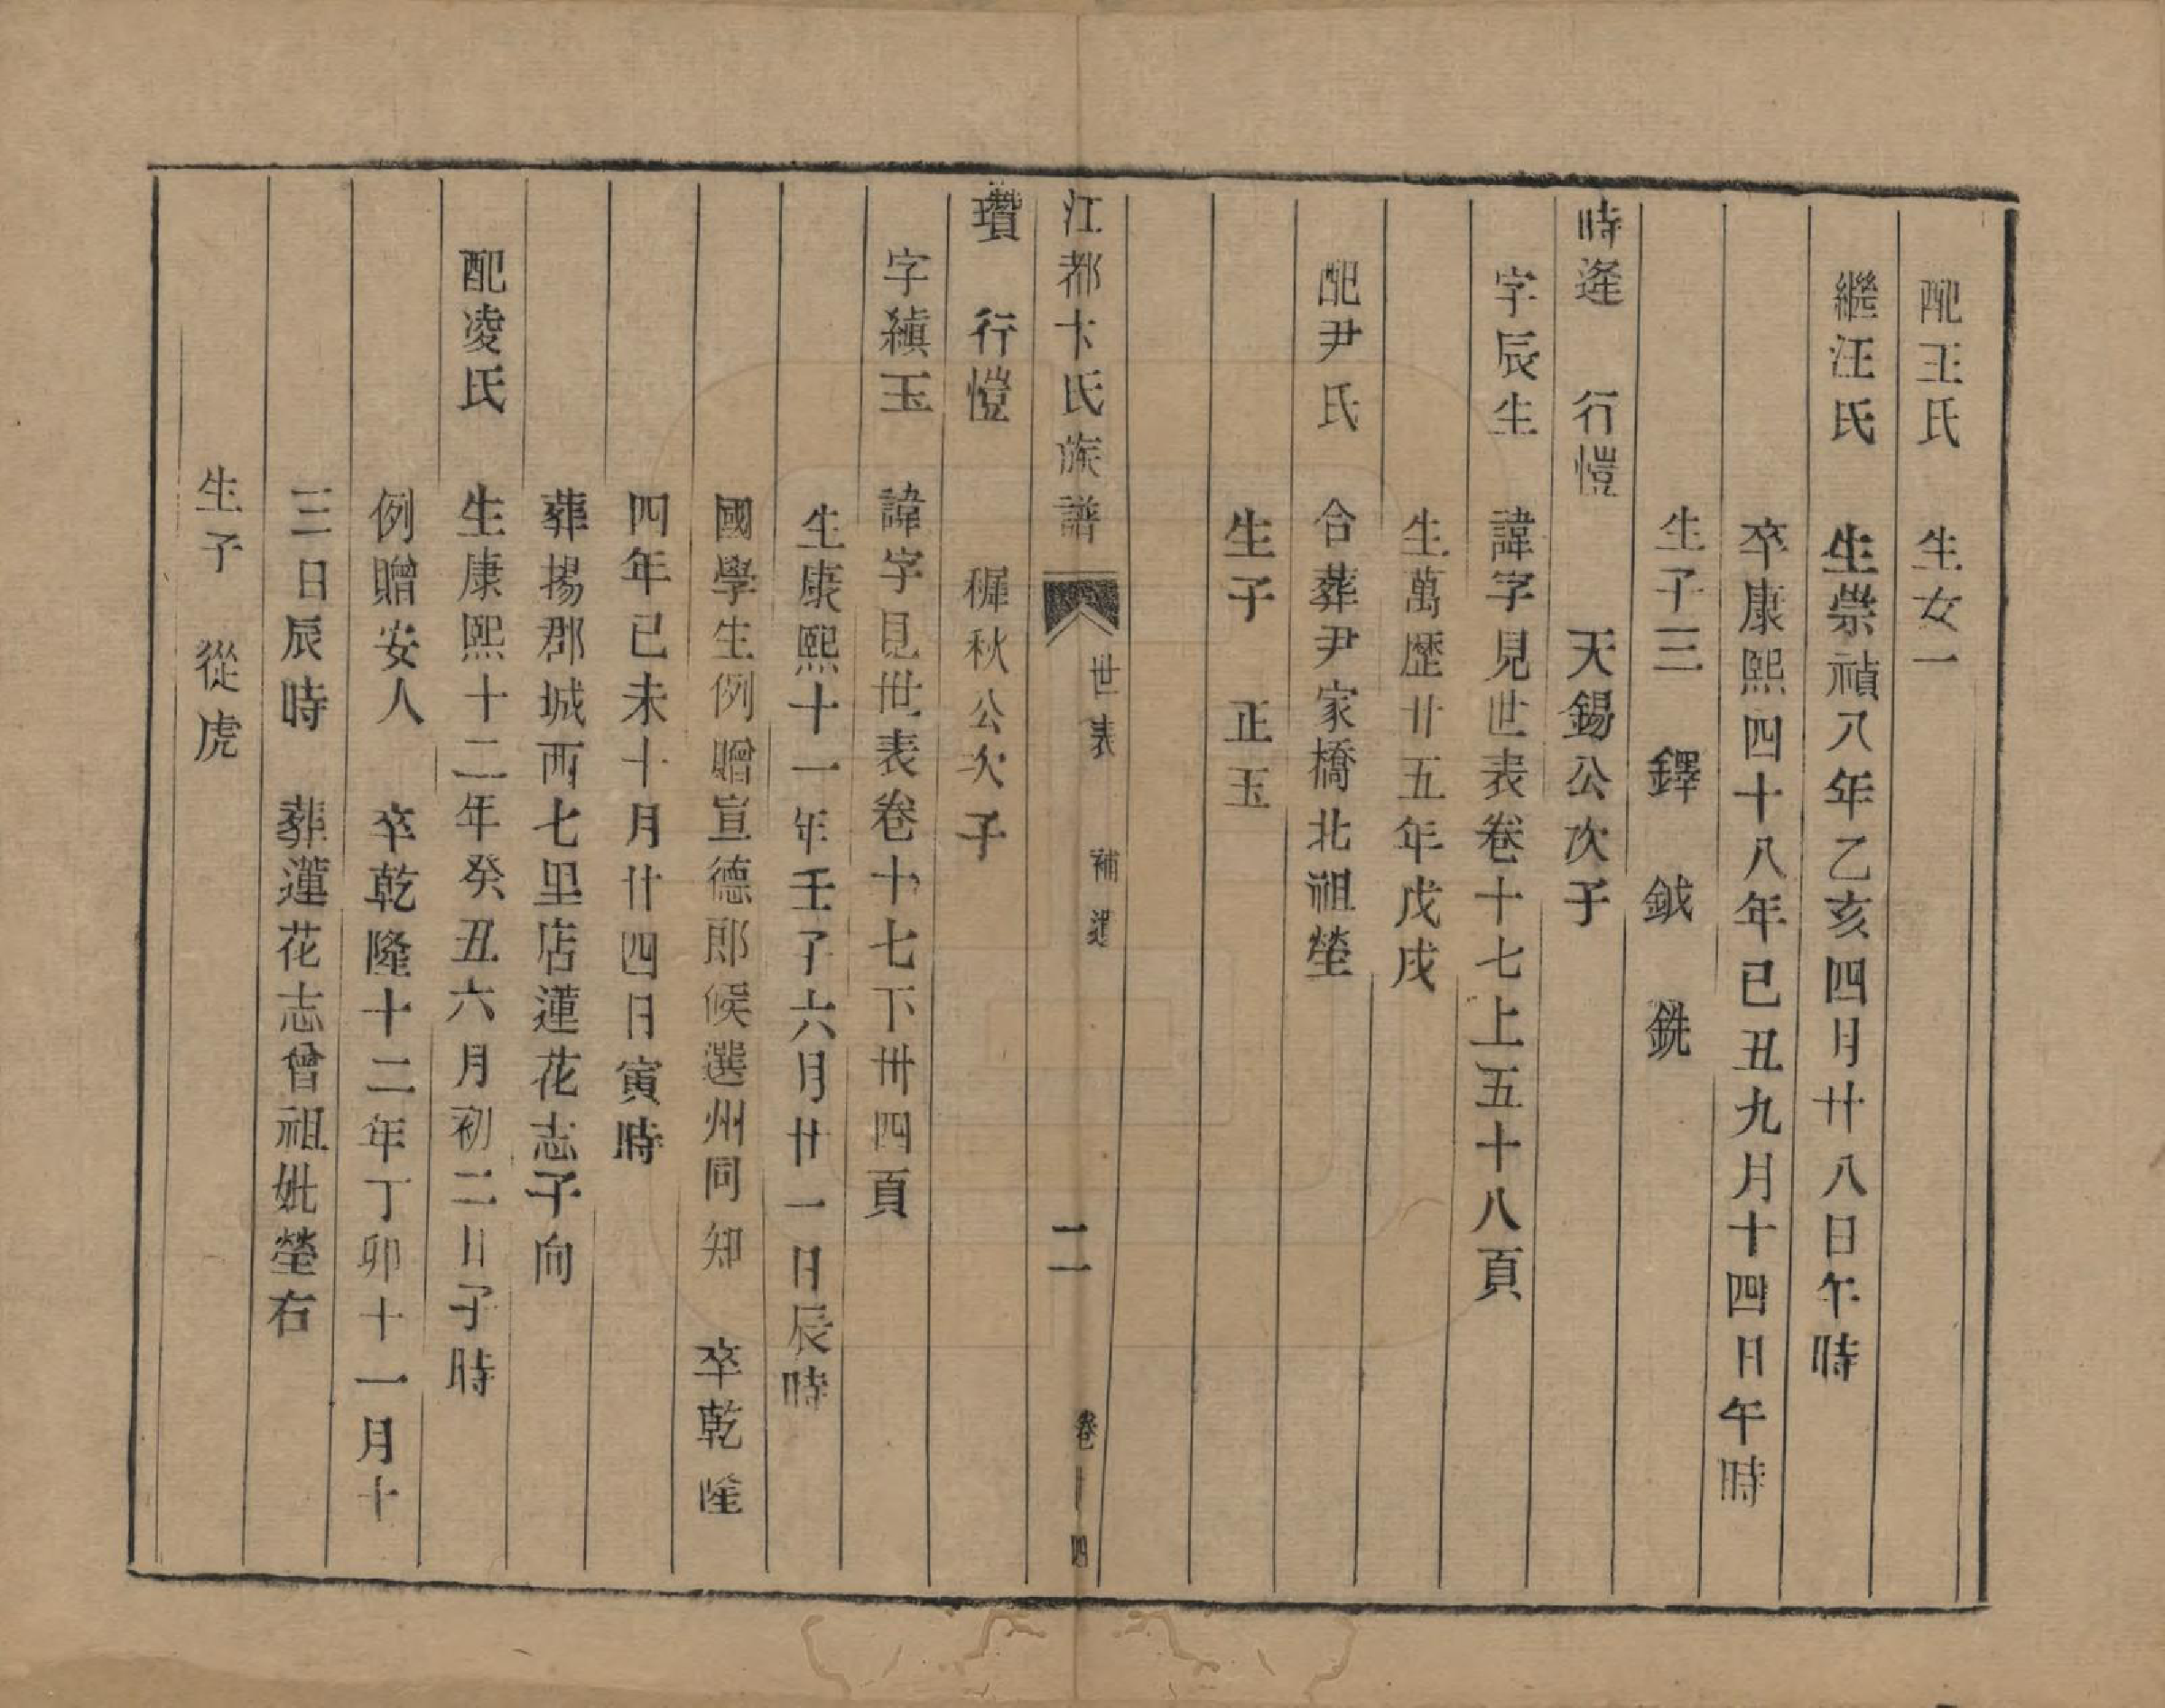 配王氏　生女一
繼汪氏　生崇禎八年乙亥四月廿八日午時
卒康熙四十八年已丑九月十四日午時
生子三　鐸　鉞　銑
時逢　行愷　天錫公次子
字辰生　諱字見世表卷十七上五十八頁
生萬歷廿五年戊戌
配尹氏　合葬尹家橋北祖塋
生子　正玉
江都卞氏族譜　世表　補遺　二　卷十四
瓚　行愷　穉秋公次子
字縝玉　諱字見世表卷十七下卅四頁
生康熙十一年壬子六月廿一日辰時
國學生例贈宣德郎候選州同知　卒乾隆
四年已未十月廿四日寅時
葬揚郡城西七里店蓮花志子向
配凌氏　生康熙十二年癸丑六月初二日子時
例贈安人　卒乾隆十二年丁卯十一月十
三日辰時　葬蓮花志曾祖妣塋右
生子　從虎